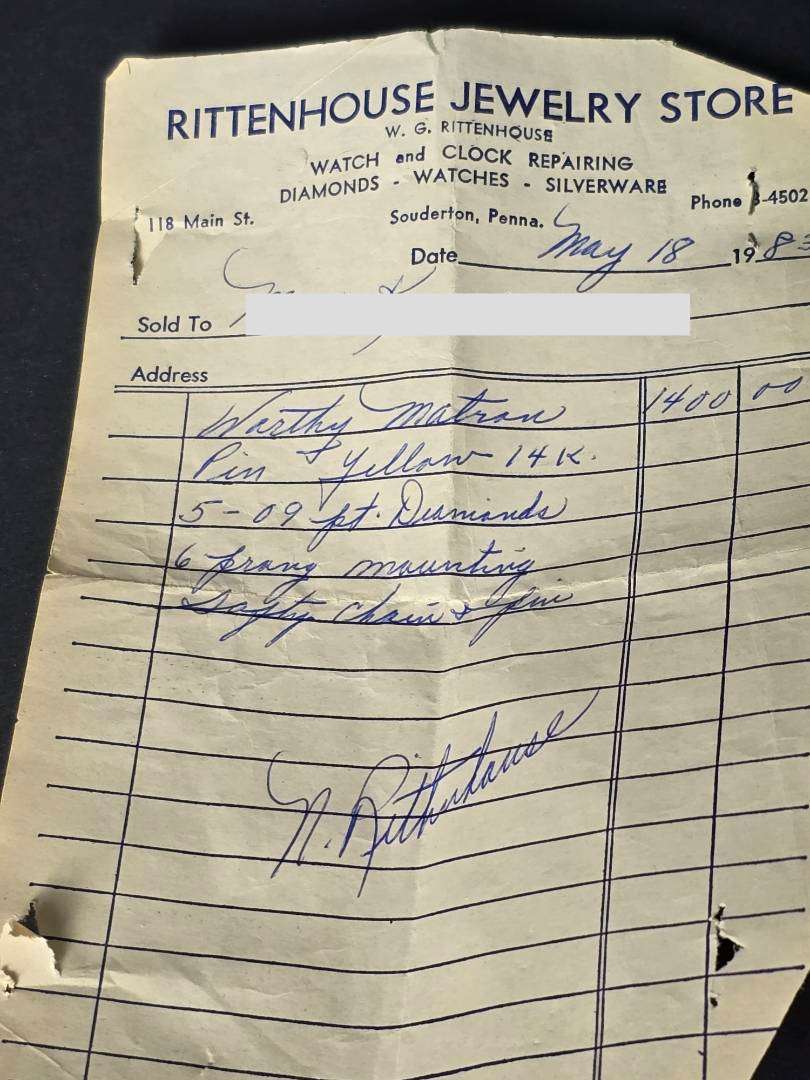 RITTENHOUSE JEWELRY STORE
W. G. RITTENHOUSE
WATCH and CLOCK REPAIRING
DIAMONDS - WATCHES - SILVERWARE
118 Main St. Souderton, Penna. Phone 3-4502
Date May 18 1983
Sold To
Address
Worthy Matron 1400 00
Pin + Yellow 14K.
5-09 pt. Diamonds
6 prong mounting
Safty chain & pin
N. Rittenhouse